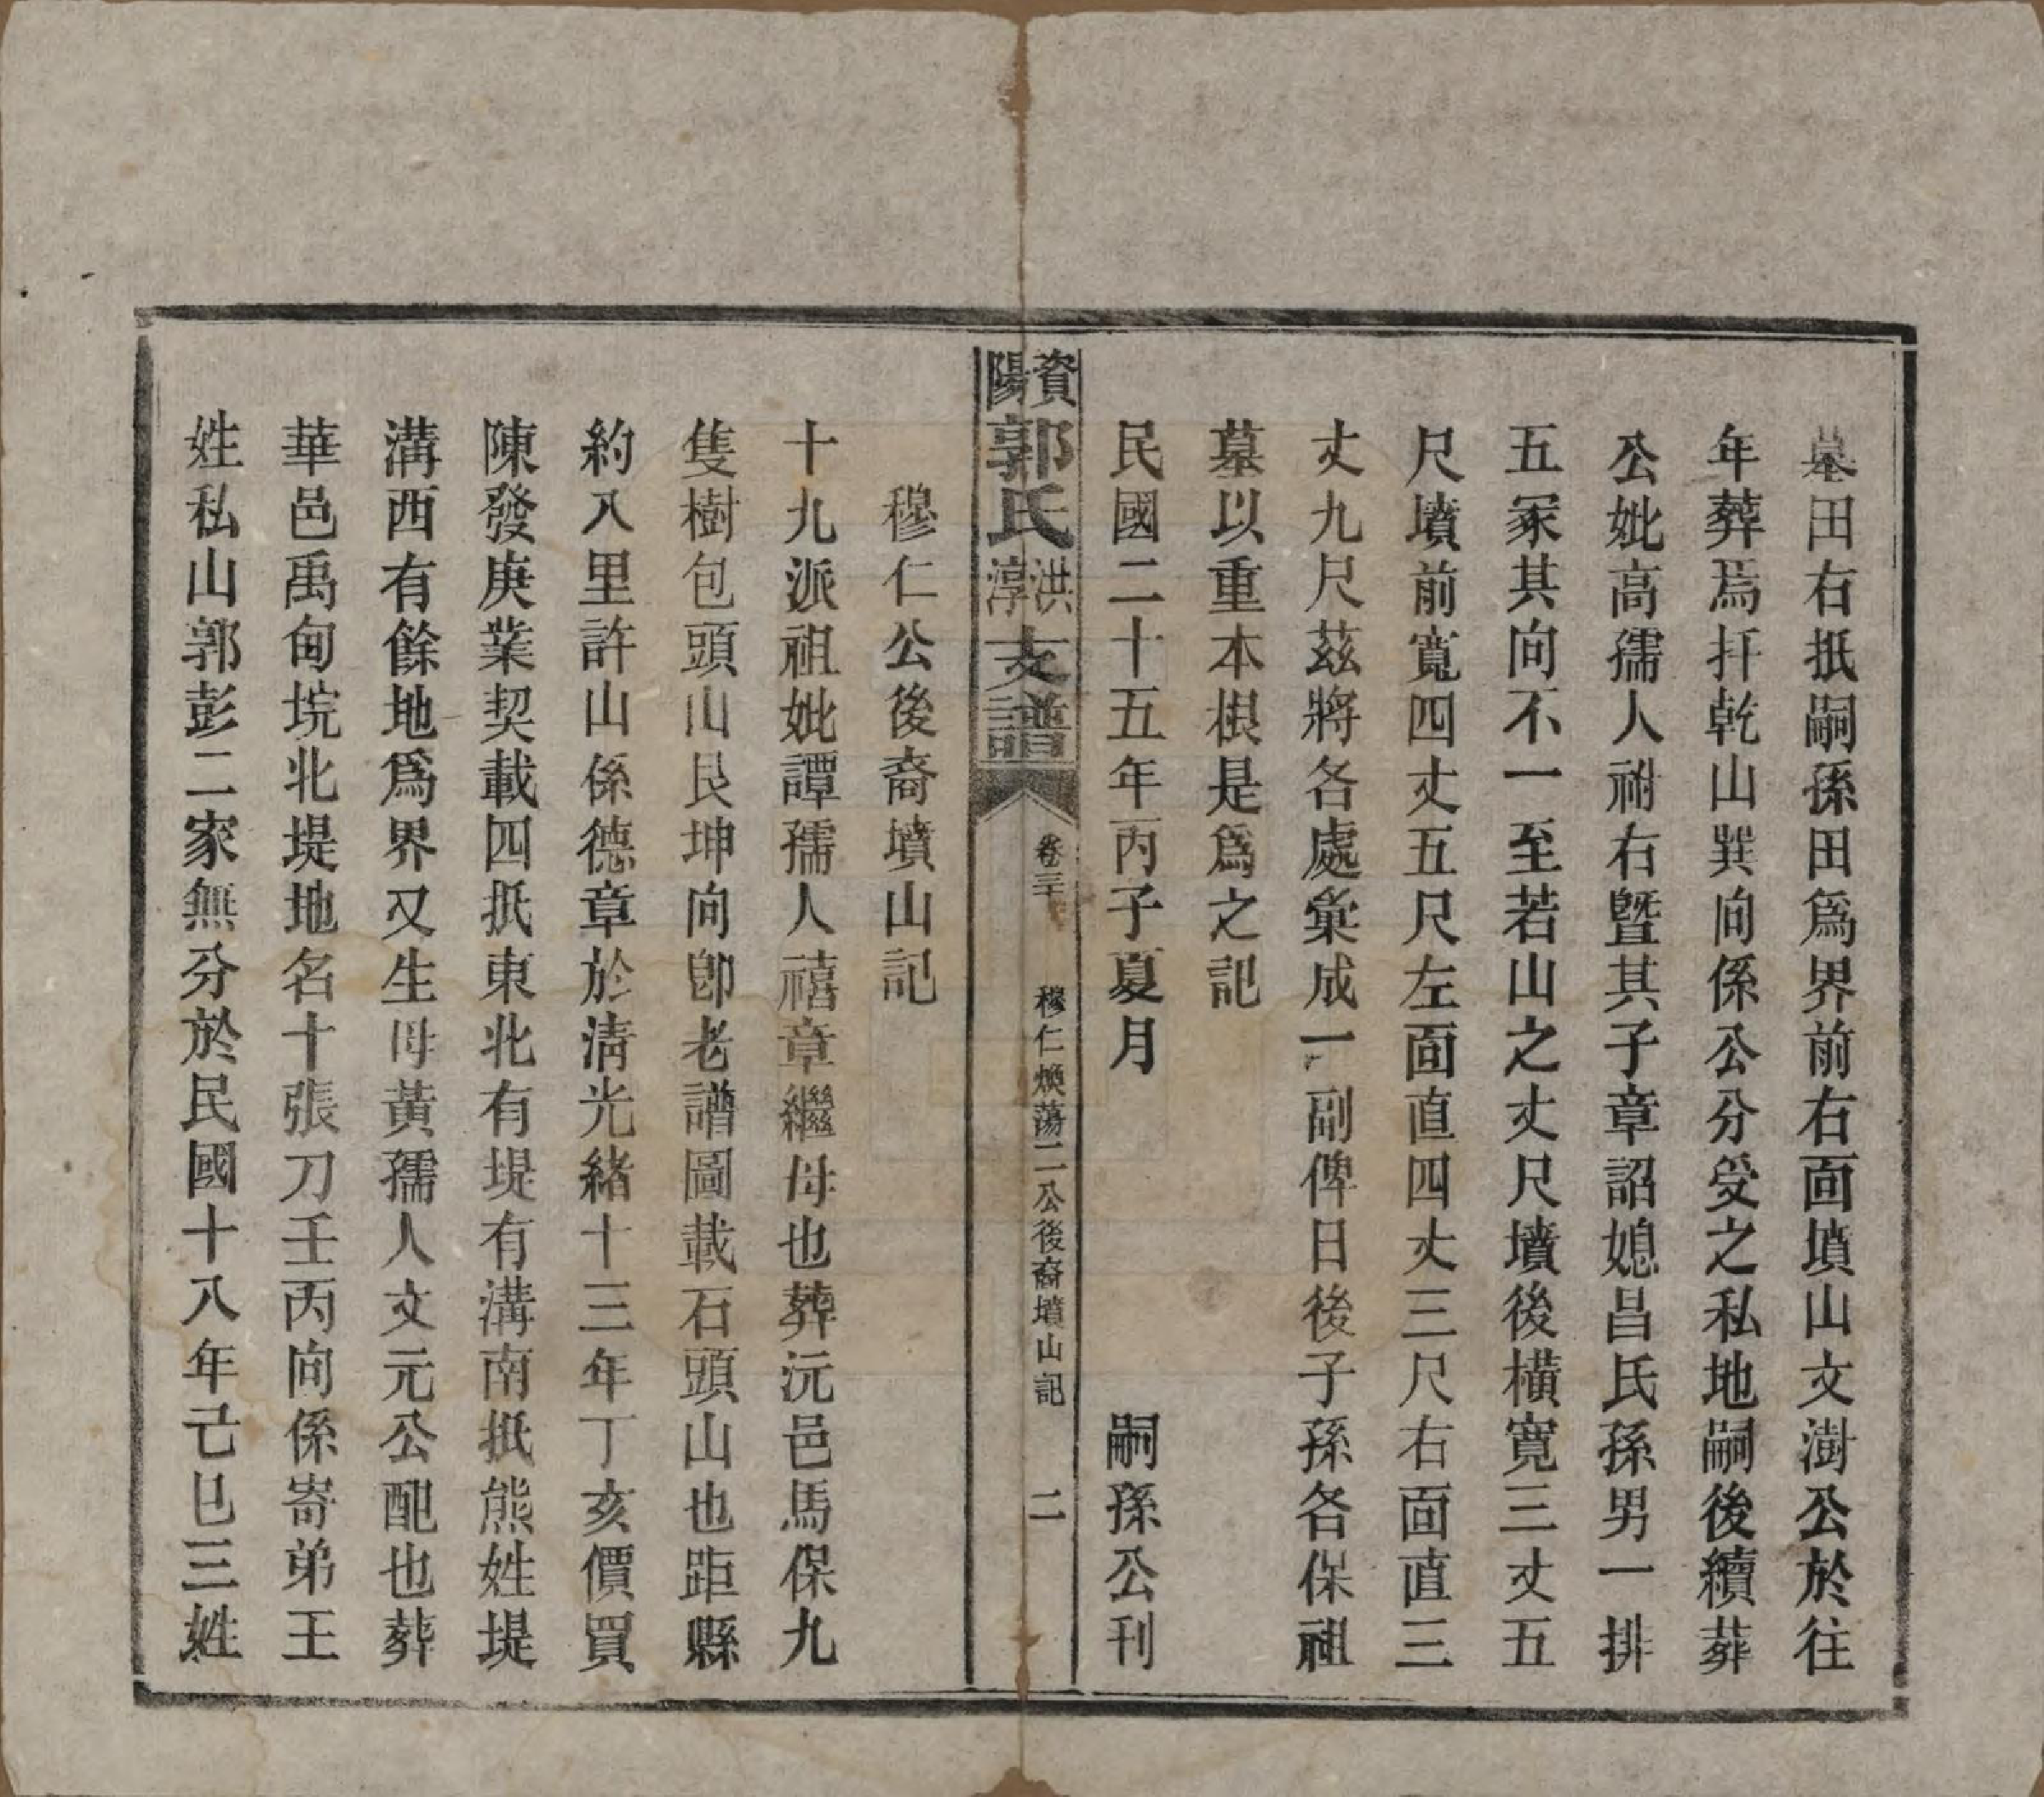 墓田右抵嗣孫田爲界前右面墳山文澍公於往
年葬焉扦乾山巽向係公分受之私地嗣後續葬
公妣高孺人祔右暨其子章詔媳昌氏孫男一排
五冢其向不一至若山之丈尺墳後橫寬三丈五
尺墳前寬四丈五尺左面直四丈三尺右面直三
丈九尺茲將各處彙成一副俾日後子孫各保祖
墓以重本根是爲之記
民國二十五年丙子夏月 嗣孫公刊
資陽郭氏洪淳支譜 卷三 穆仁煥蕩二公後裔墳山記 二
穆仁公後裔墳山記
十九派祖妣譚孺人禧章繼母也葬沅邑馬保九
隻樹包頭山艮坤向卽老譜圖載石頭山也距縣
約八里許山係德章於淸光緒十三年丁亥價買
陳發庚業契載四抵東北有堤有溝南抵熊姓堤
溝西有餘地爲界又生母黃孺人文元公配也葬
華邑禹甸垸北堤地名十張刀壬丙向係寄弟王
姓私山郭彭二家無分於民國十八年己巳三姓